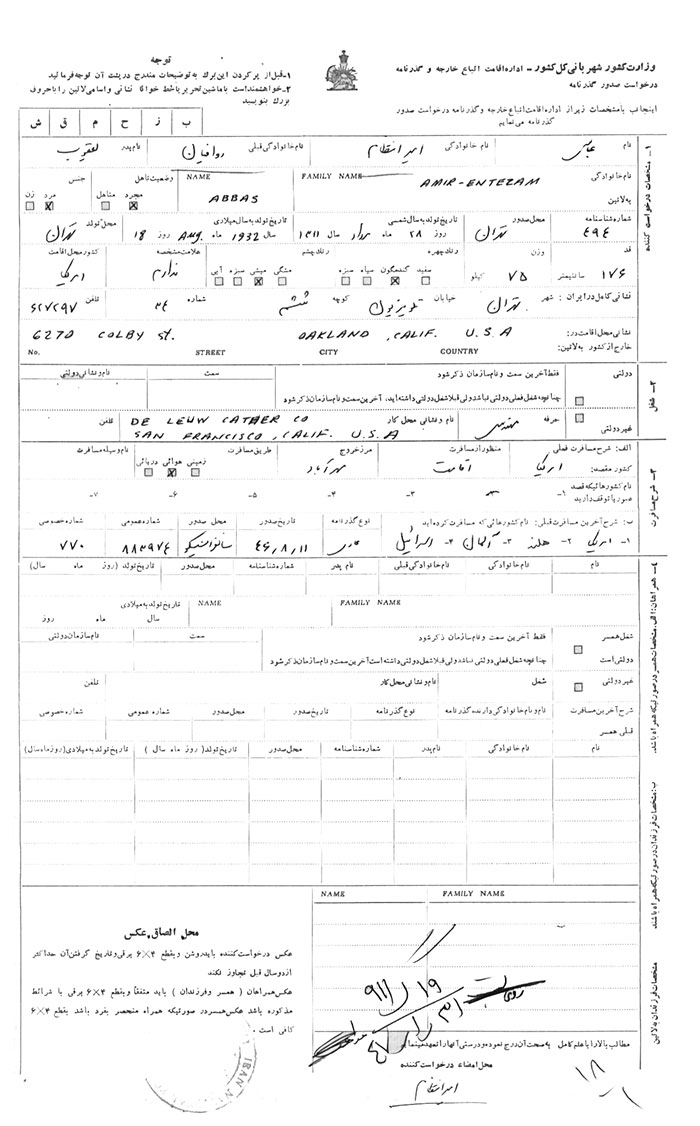 وزارت کشور شهربانی کل کشور - اداره اقامت اتباع خارجه و گذرنامه
درخواست صدور گذرنامه
اینجانب با مشخصات زیر از اداره اقامت اتباع خارجه و گذرنامه درخواست صدور
گذرنامه می نمایم
توجه
۱- قبل از پر کردن این برگ به توضیحات مندرج در پشت آن توجه فرمائید
۲- خواهشمند است با ماشین تحریر یا خط خوانا نشانی و اسامی لاتین را با حروف
بزرگ بنویسید
ب ز ح م ق ش
۱- مشخصات درخواست کننده
نام عباس نام خانوادگی امیر انتظام نام خانوادگی قبلی روافیان نام پدر یعقوب
نام خانوادگی به لاتین FAMILY NAME AMIR-ENTEZAM NAME ABBAS وضعیت تاهل مجرد متاهل جنس مرد زن
شماره شناسنامه ۴۹۴ محل صدور تهران تاریخ تولد به سال شمسی روز ۲۸ ماه مرداد سال ۱۳۱۱ تاریخ تولد به سال میلادی سال 1932 ماه Aug. روز 18 محل تولد تهران
قد ۱۷۶ سانتیمتر وزن ۷۵ کیلو رنگ چهره سفید گندمگون سیاه سبزه رنگ چشم مشگی میشی سبزه آبی علامت مشخصه ندارم کشور محل اقامت امریکا
نشانی کامل در ایران: شهر تهران خیابان تلویزیون کوچه ششم شماره ۳۴ تلفن ۶۲۷۲۹۷
نشانی محل اقامت در خارج از کشور به لاتین: 6270 COLBY St. OAKLAND, CALIF. U.S.A
No. STREET CITY COUNTRY
۲- شغل
دولتی فقط آخرین سمت و نام سازمان ذکر شود سمت نام و نشانی دولتی
چنانچه شغل فعلی دولتی نباشد ولی قبلا شغل دولتی داشته اید، آخرین سمت و نام سازمان ذکر شود
غیر دولتی حرفه مهندس نام و نشانی محل کار DE LEUW CATHER CO تلفن
SAN FRANCISCO, CALIF. U.S.A
۳- شرح مسافرت
الف: شرح مسافرت فعلی منظور از مسافرت مرز خروج طریق مسافرت نام وسیله مسافرت
کشور مقصد: امریکا اقامت مهرآباد زمینی هوائی دریائی
نام کشورهائیکه قصد عبور یا توقف دارید ۱- ۲- ۳- ۴- ۵- ۶- ۷-
ب: شرح آخرین مسافرت قبلی: نام کشورهائی که مسافرت کرده اید نوع گذرنامه تاریخ صدور محل صدور شماره عمومی شماره خصوصی
۱- امریکا ۲- هلند ۳- آلمان ۴- اسرائیل عادی ۴۶/۸/۱۱ سانفرانسیسکو ۸۸۳۹۷۴ ۷۷۰
۴- همراهان: الف. مشخصات همسر در صورتیکه همراه باشد.
نام نام خانوادگی نام خانوادگی قبلی نام پدر شماره شناسنامه محل صدور تاریخ تولد (روز ماه سال)
FAMILY NAME NAME تاریخ تولد به میلادی
سال ماه روز
شغل همسر فقط آخرین سمت و نام سازمان ذکر شود سمت نام سازمان دولتی
دولتی است چنانچه شغل فعلی دولتی نباشد ولی قبلا شغل دولتی داشته است آخرین سمت و نام سازمان ذکر شود
غیر دولتی شغل نام و نشانی محل کار تلفن
شرح آخرین مسافرت قبلی همسر نام و نام خانوادگی دارنده گذرنامه نوع گذرنامه تاریخ صدور محل صدور شماره عمومی شماره خصوصی
ب: مشخصات فرزندان در صورتیکه همراه باشند
نام نام خانوادگی نام پدر شماره شناسنامه محل صدور تاریخ تولد ( روز ماه سال ) تاریخ تولد به میلادی (روز ماه سال)
مشخصات فرزندان به لاتین
NAME FAMILY NAME
محل الصاق عکس
عکس درخواست کننده باید روشن و بقطع ۴×۶ برقی و تاریخ گرفتن آن حداکثر
از دو سال قبل تجاوز نکند
عکس همراهان ( همسر و فرزندان ) باید متفقاً و بقطع ۴×۶ برقی با شرائط
مذکوره باشد عکس همسر در صورتیکه همراه منحصر بفرد باشد بقطع ۴×۶
کافی است .
مطالب بالا را با علم کامل به صحت آن درج نموده و درستی آنها را تعهد مینمایم
محل امضاء درخواست کننده
امیر انتظام
IRAN